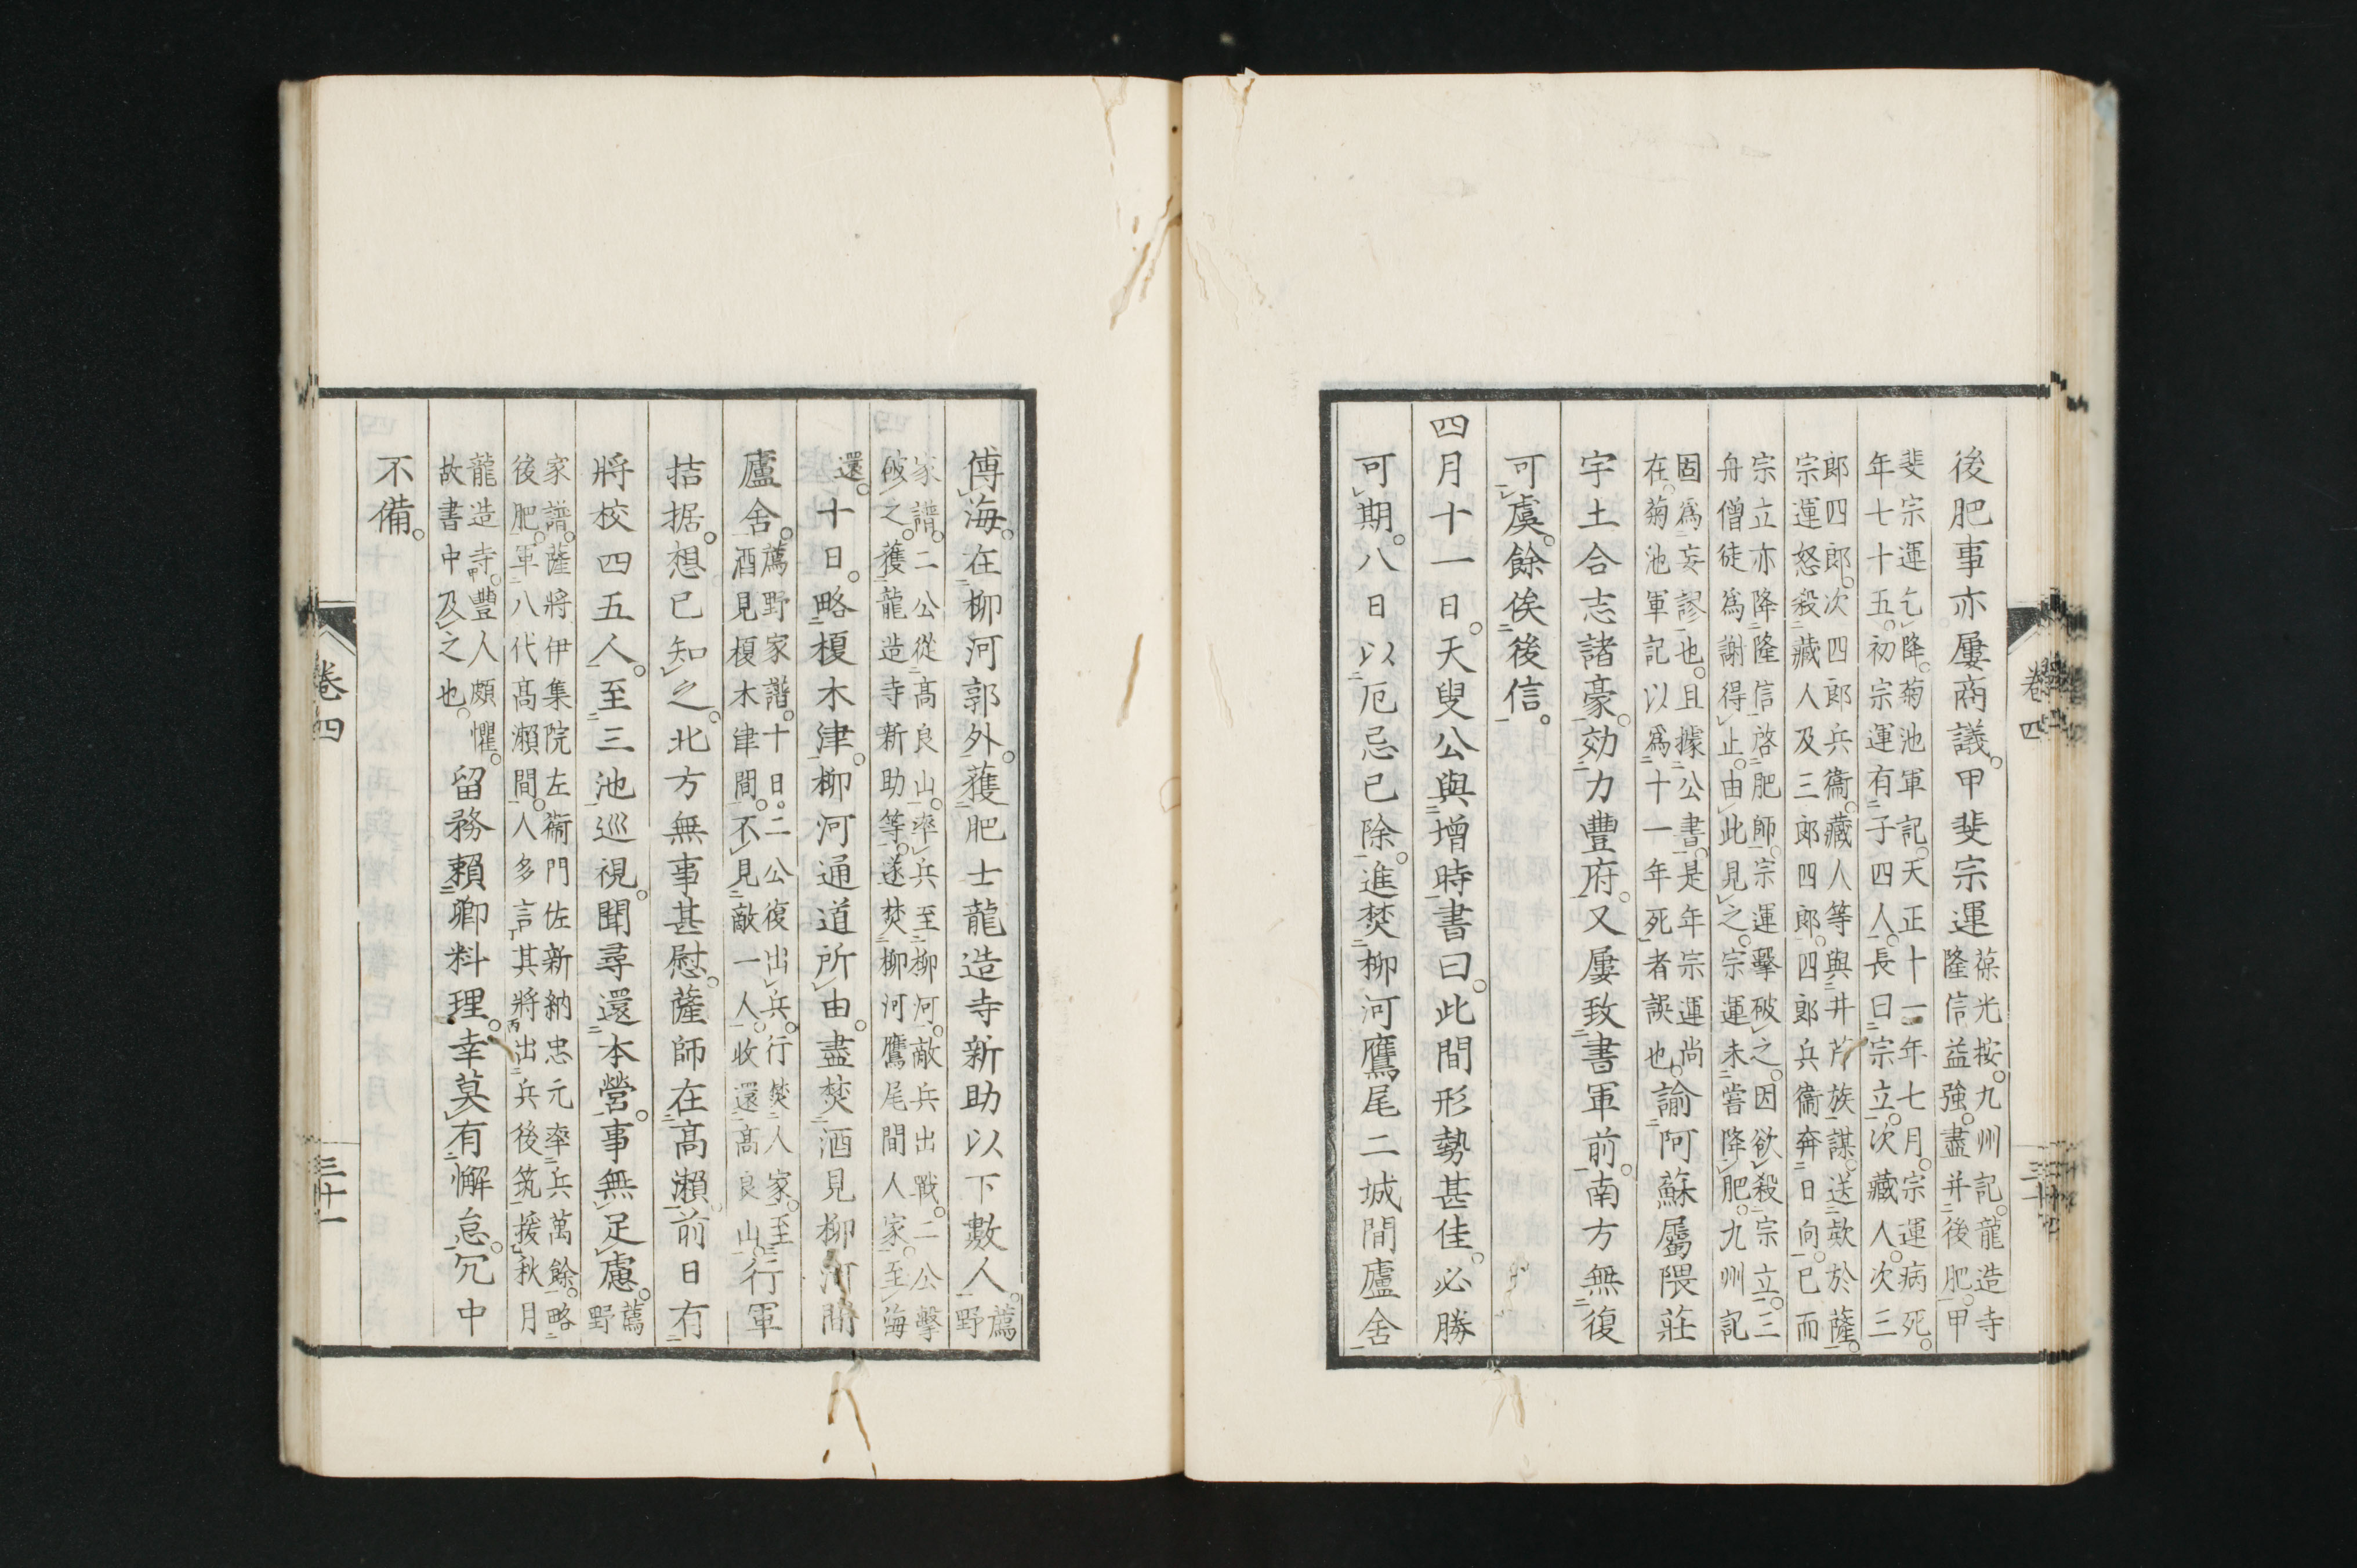 後肥事亦屢商議。甲斐宗運葆光按。九州記。龍造寺
隆信益強。盡并後肥。甲
斐宗運乞降。菊池軍記。天正十一年七月。宗運病死。
年七十五。初宗運有子四人。長曰宗立。次藏人。次三
郎四郎。次四郎兵衞。藏人等與井芹族謀。送款於薩。
宗運怒殺藏人及三郎四郎。四郎兵衞奔日向。已而
宗立亦降隆信。啓肥師。宗運擊破之。因欲殺宗立。三
舟僧徒爲謝得止。由此見之。宗運未嘗降肥。九州記
固爲妄謬也。且據公書。是年宗運尚
在。菊池軍記以爲十一年死者誤也。諭阿蘇屬隈莊
宇土合志諸豪。効力豐府。又屢致書軍前。南方無復
可虞。餘俟後信。
四月十一日。天叟公與增時書曰。此間形勢甚佳。必勝
可期。八日以厄忌已除。進焚柳河鷹尾二城間廬舍
卷四
三十
傳海。在柳河郭外。獲肥士龍造寺新助以下數人。薦
野
家譜。二公從高良山。率兵至柳河。敵兵出戰。二公擊
破之。獲龍造寺新助等。遂焚柳河鷹尾間人家。至海
還。十日。略榎木津。柳河通道所由。盡焚酒見柳河間
廬舍。薦野家譜。十日。二公復出兵。行焚人家。至
酒見榎木津間。不見敵一人。收還高良山。行軍
拮据。想已知之。北方無事甚慰。薩師在高瀨。前日有
將校四五人。至三池巡視。聞尋還本營。事無足慮。薦
野
家譜。薩將伊集院左衞門佐新納忠元率兵萬餘。略
後肥。軍八代高瀨間。人多言其將出兵後筑。援秋月
龍造寺。豐人頗懼。
故書中及之也。留務賴卿料理。幸莫有懈怠。冗中
不備。
卷四
三十一